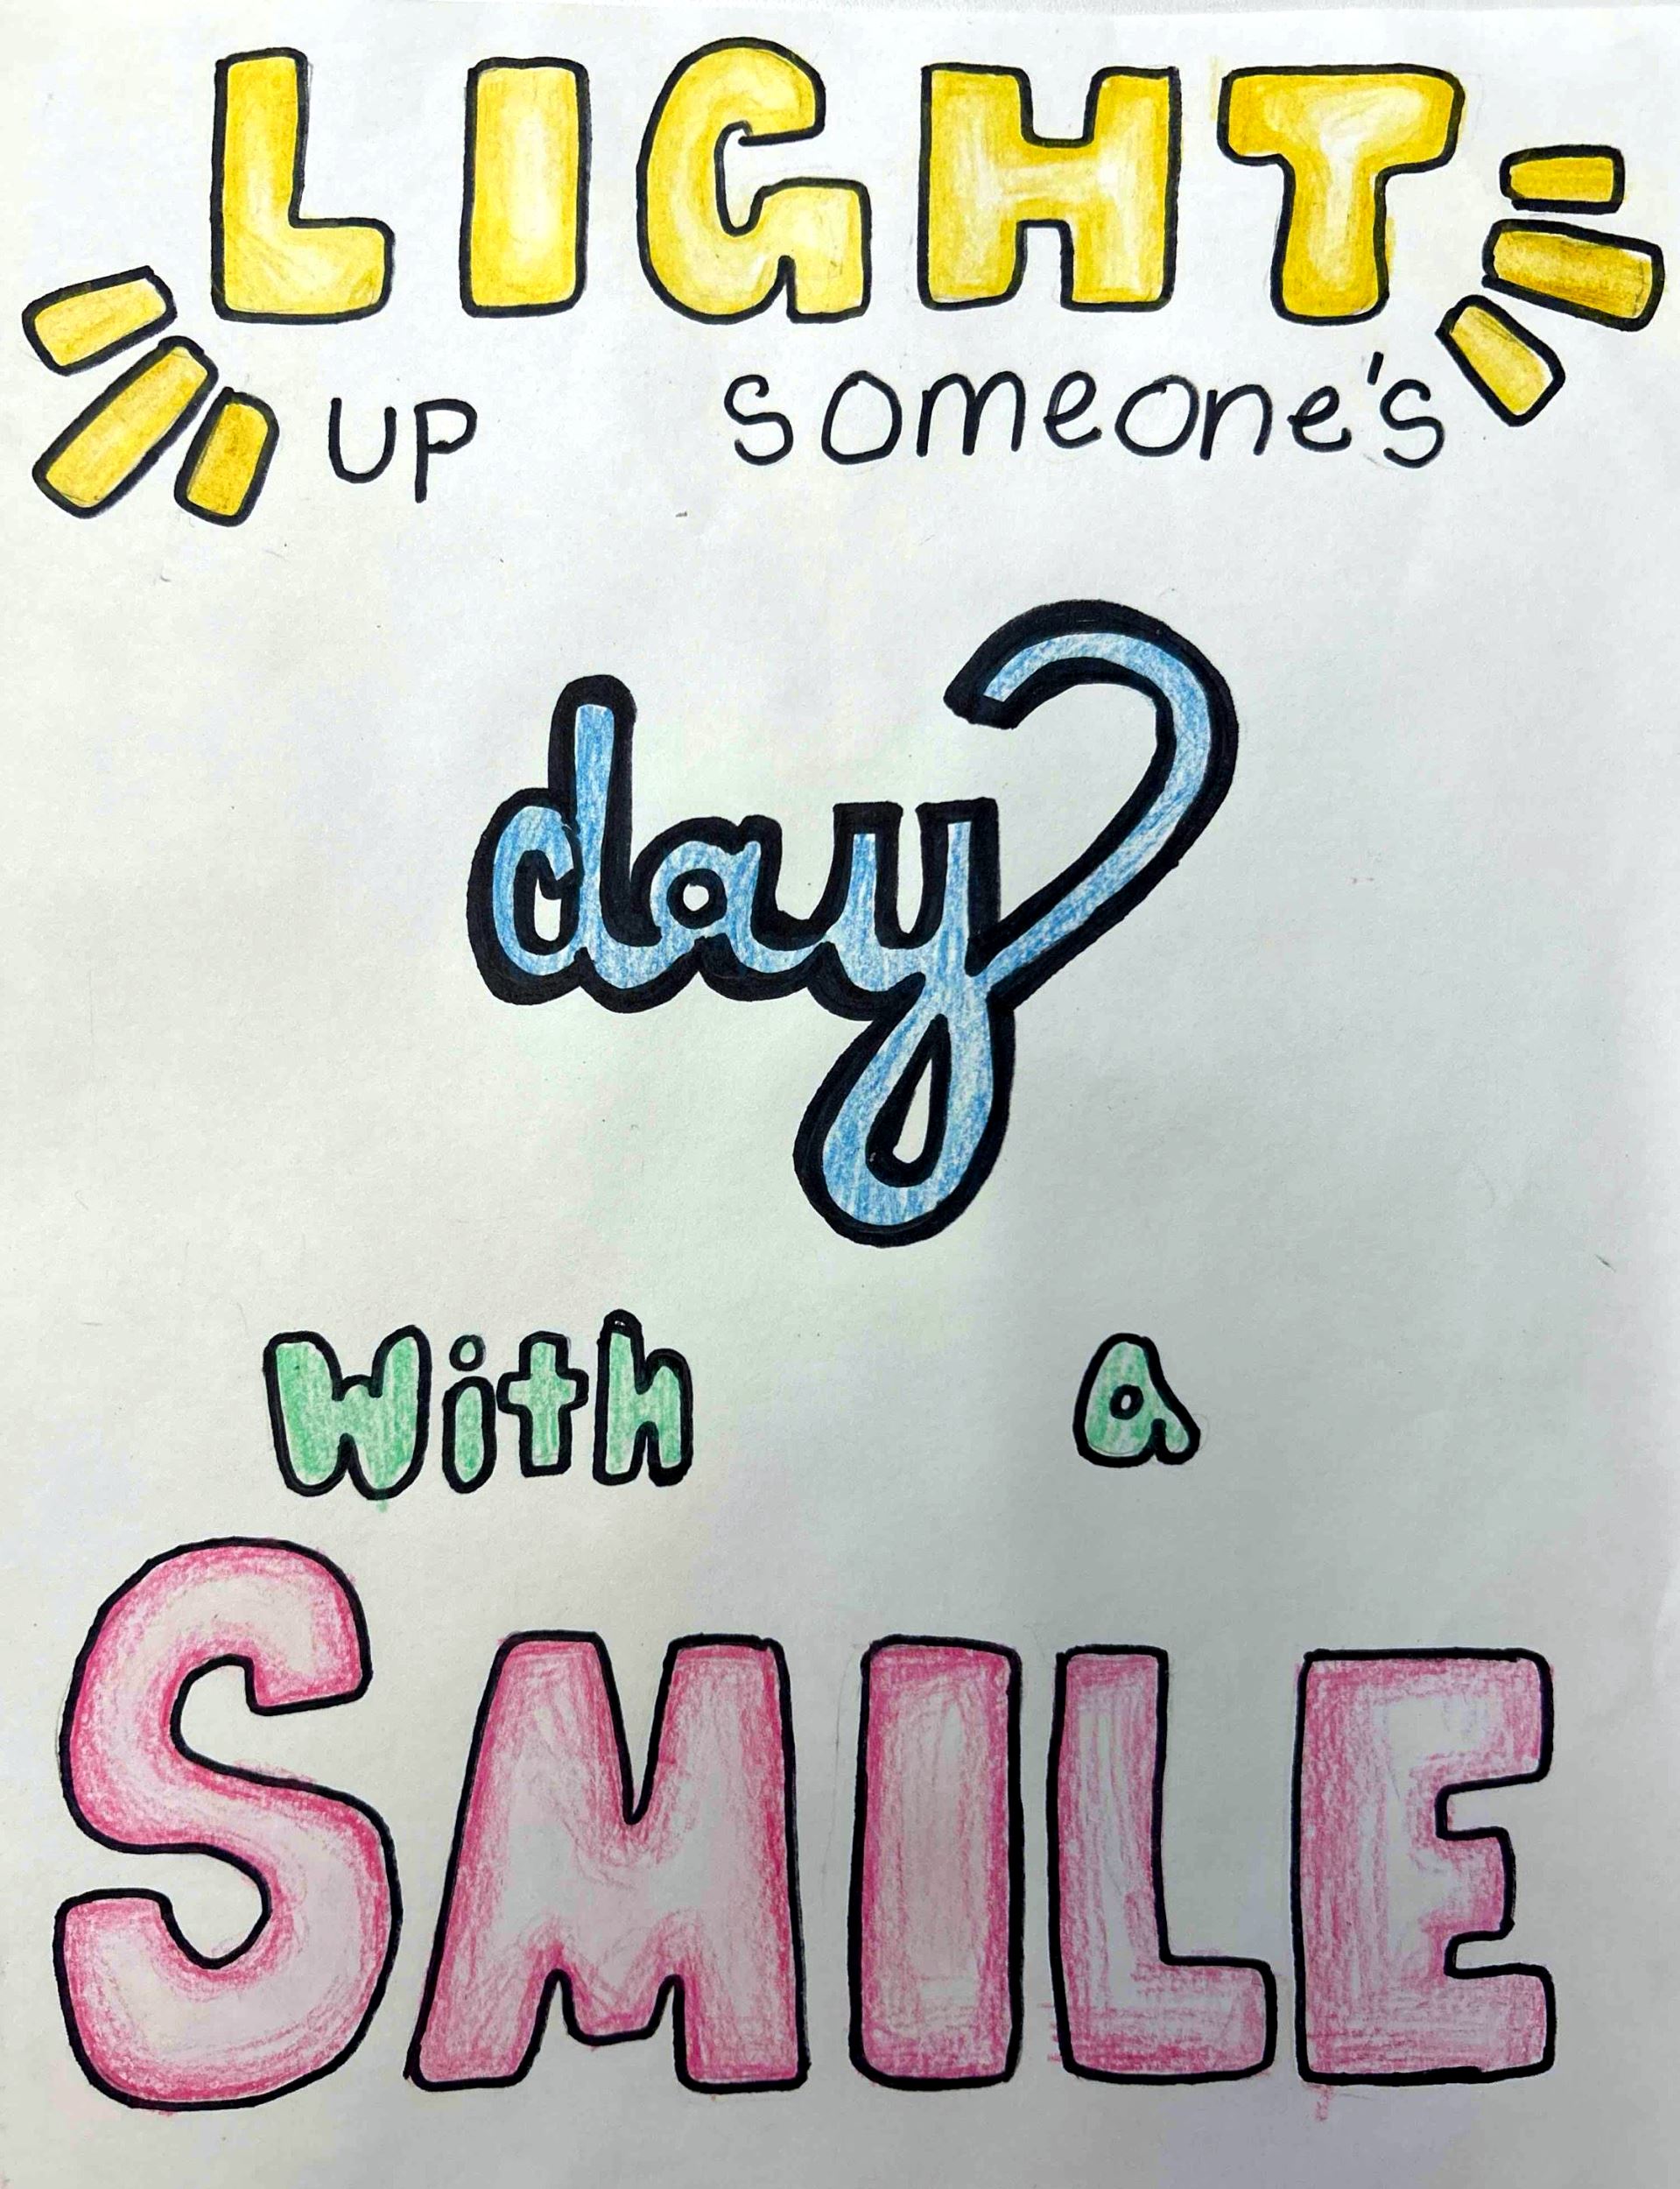 LIGHT
up someone's
day
With a
SMILE